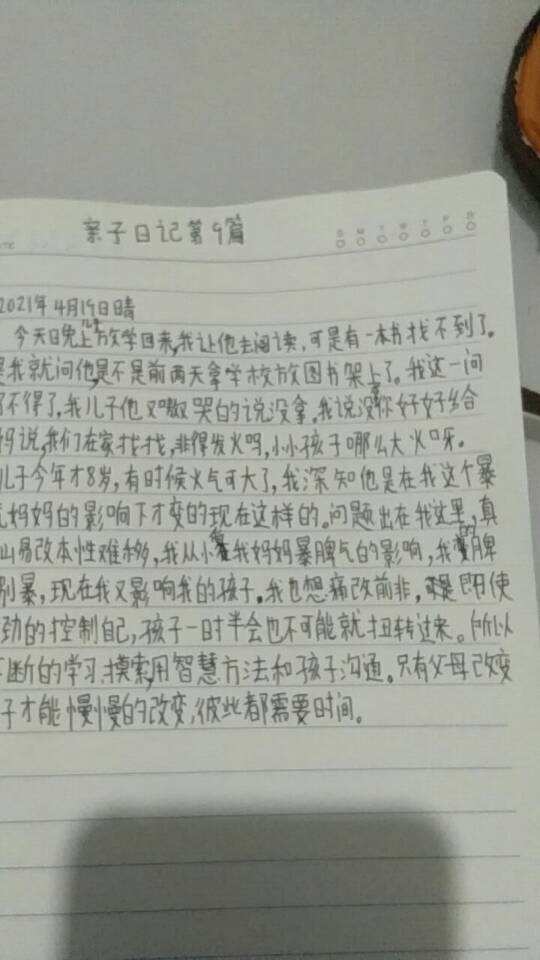 亲子日记第9篇
S M T W T F S
2021年4月19日晴
今天日晚上放学回来,我让他去阅读,可是有一本书找不到了。
是我就问他,是不是前两天拿学校放图书架上了。我这一问
了不得了,我儿子他又嗷哭的说没拿。我说没拿你好好给
妈说,我们在家找找,非得发火吗,小小孩子哪么大火呀。
儿子今年才8岁,有时候火气可大了,我深知他是在我这个暴
妈妈的影响下才变的现在这样的。问题出在我这里,真
山易改本性难移,我从小受我妈妈暴脾气的影响,我的脾
别暴,现在我又影响我的孩子。我也想痛改前非,可是即使
劲的控制自己,孩子一时半会也不可能就扭转过来。所以
断的学习,摸索,用智慧方法和孩子沟通。只有父母改变
子才能慢慢的改变,彼此都需要时间。